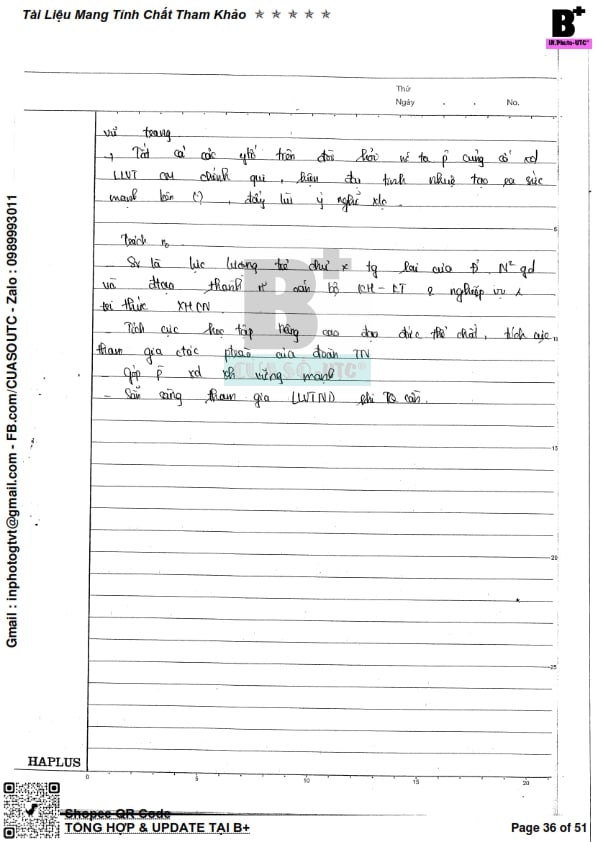 Tài Liệu Mang Tính Chất Tham Khảo ★ ★ ★ ★ ★
B+
IN.Photo-UTC
Thứ
Ngày . . No.
vũ trang
→ Tất cả các ytố trên đòi hỏi nc ta p củng cố xd
LLVT CM chính quy, hiện đại tinh nhuệ tạo ra sức
mạnh , đẩy lùi ý nghĩ xlc.
Trách no
- SV là lực lượng trẻ chủ x tg lai của Đ N2 gd
và đtạo thành cán bộ KH-KT & nghiệp vụ
tri thức XHCN
- Tích cực học tập nâng cao đạo đức thể chất, tích cực
tham gia ctác ptrào của đoàn TN
- góp p xd vững mạnh
- Sẵn sàng tham gia LLVTND khi TQ cần.
B+
CỬA SỔ-UTC
5
15
20
25
HAPLUS
0 5 10 15 20
Gmail : inphotogtvt@gmail.com - FB.com/CUASOUTC - Zalo : 0989993011
Shopee QR Code
TỔNG HỢP & UPDATE TẠI B+
Page 36 of 51